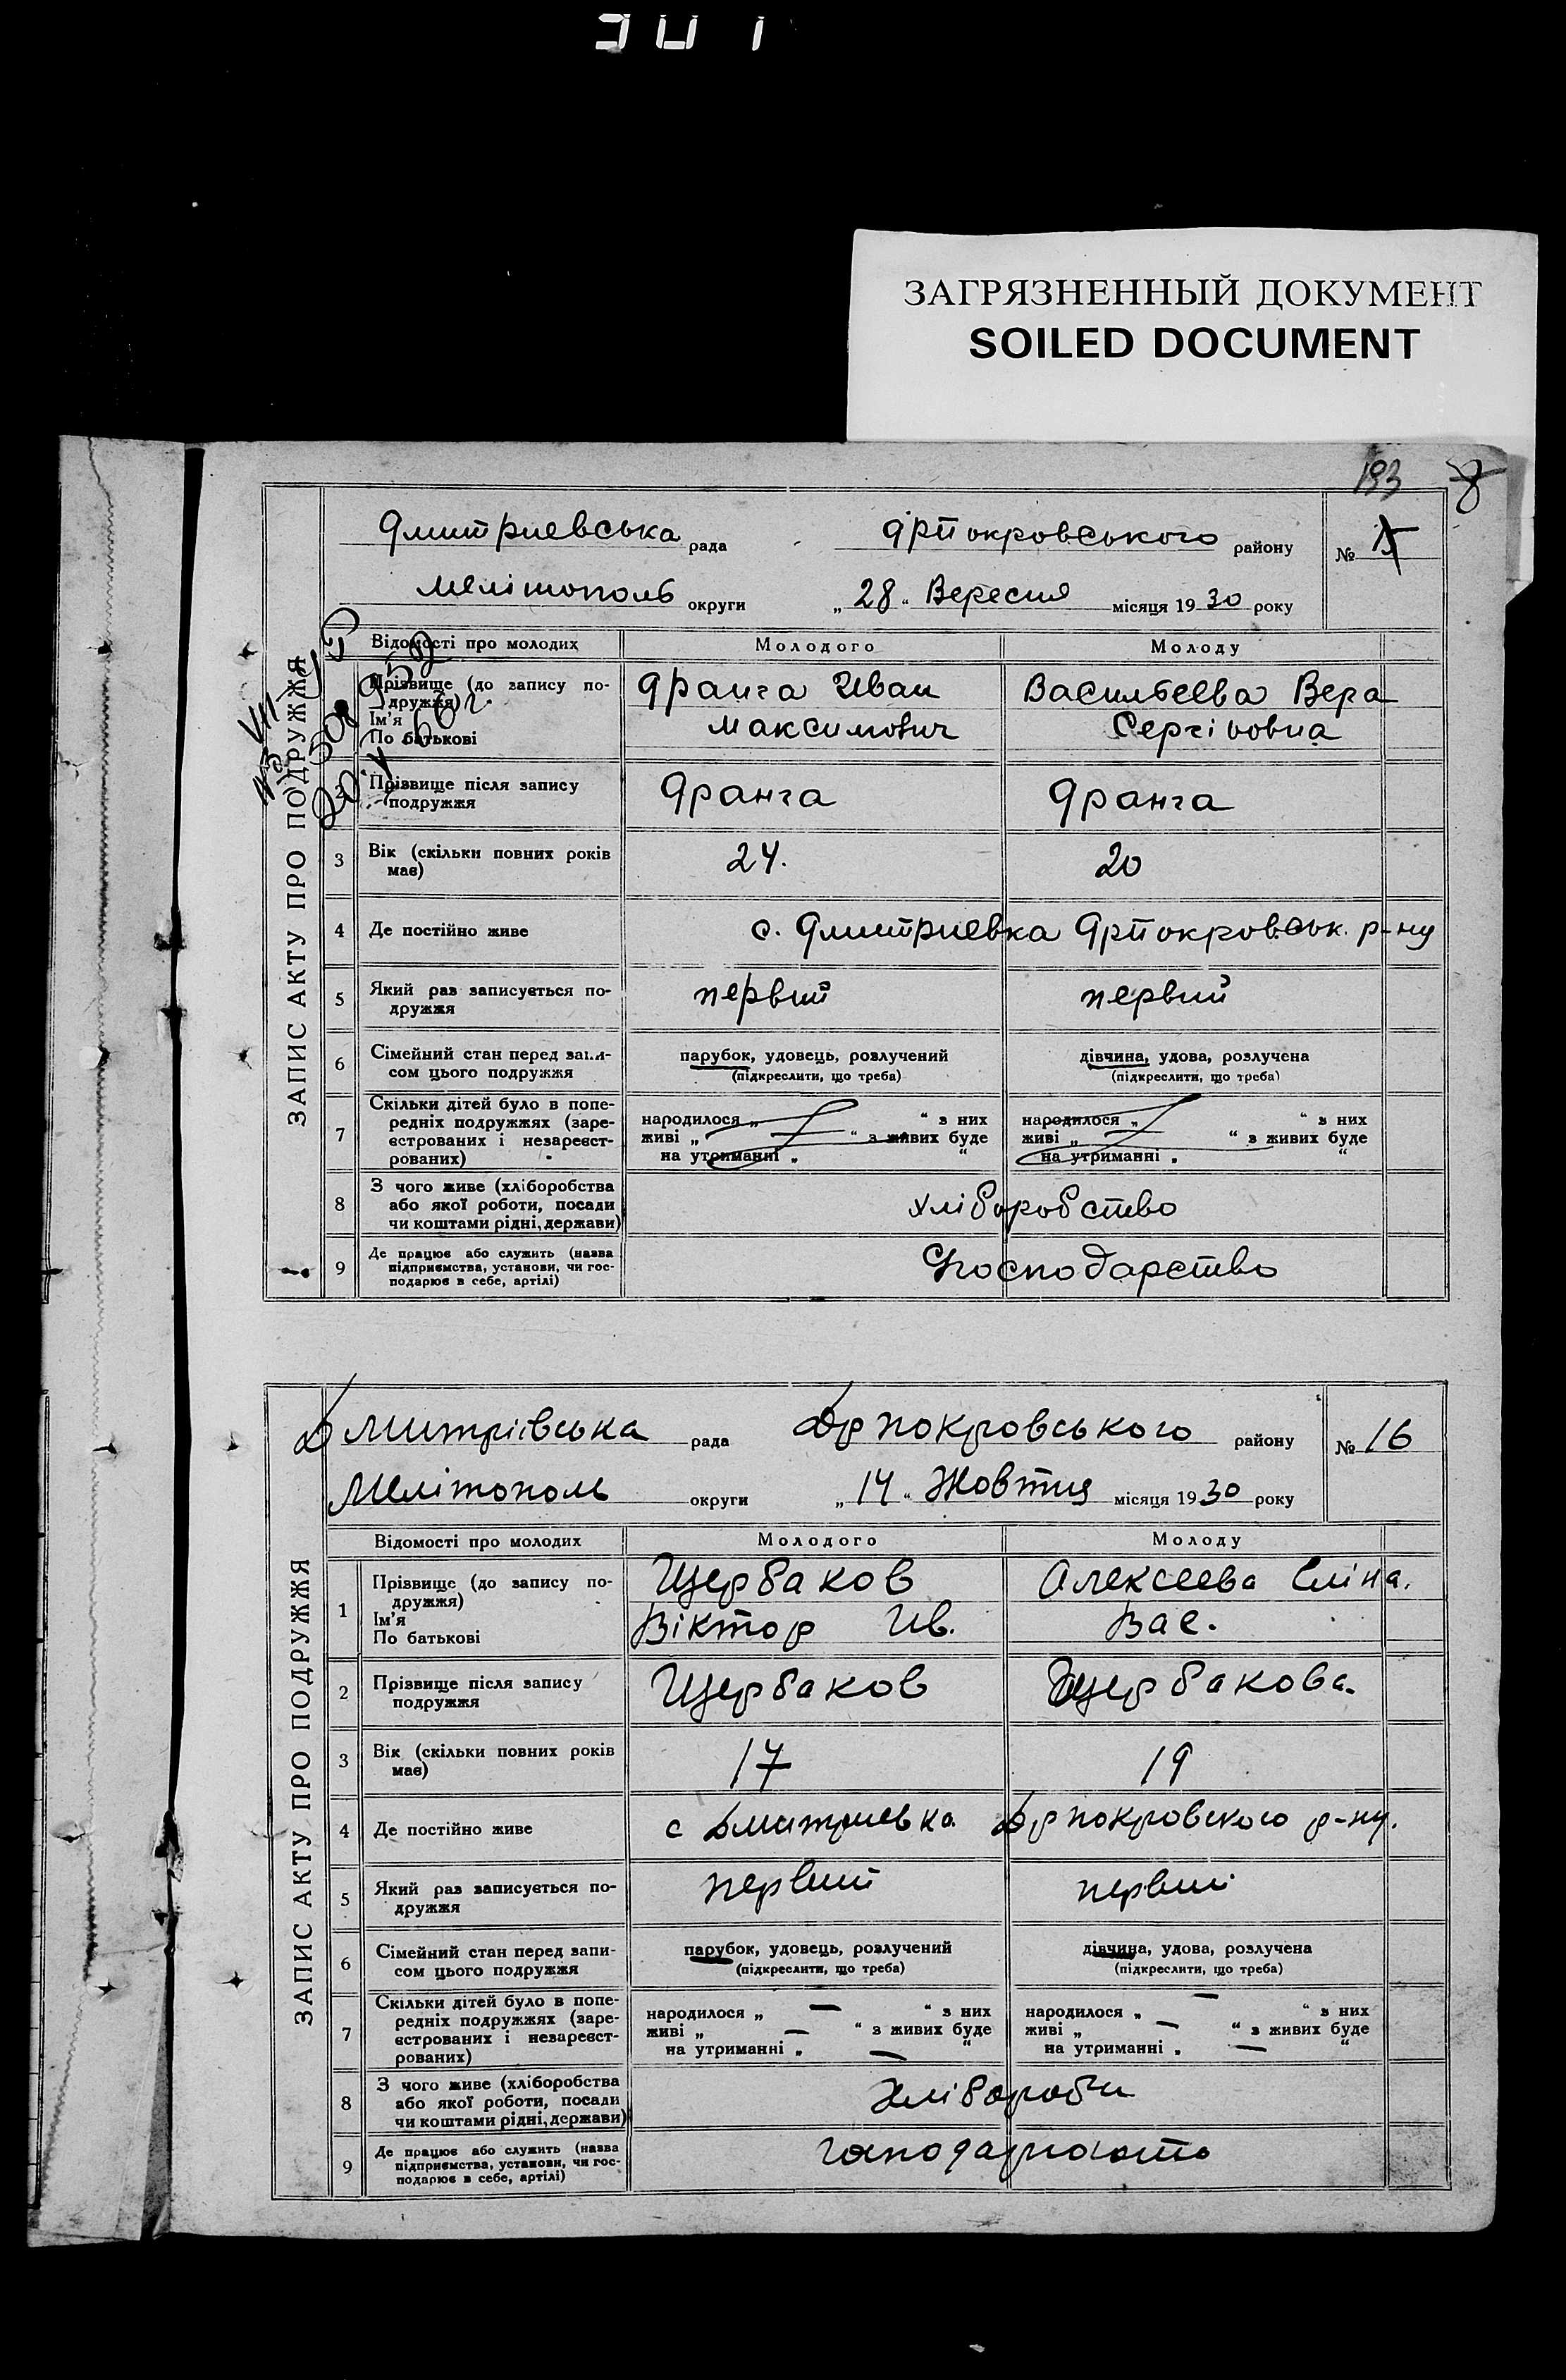 ЗАГРЯЗНЕННЫЙ ДОКУМЕНТ
SOILED DOCUMENT
193 8
ЗАПИС АКТУ ПРО ПОДРУЖЖЯ
Дмитриевська рада Дрпокровського району №
Мелітополь округи „28“ Вересня місяця 1930 року
Відомості про молодих Молодого Молоду
Прізвище (до запису по-
дружжя)
Ім’я
По батькові
Дранга Иван Васильеева Вера
Максимович Сергіовна
2 Прізвище після запису
подружжя
Дранга Дранга
3 Вік (скільки повних років
має)
24. 20
4 Де постійно живе с. Дмитриевка Дрпокровськ. р-ну
5 Який раз записується по-
дружжя
первий первий
6 Сімейний стан перед запи-
сом цього подружжя
парубок, удовець, розлучений дівчина, удова, розлучена
(підкреслити, що треба) (підкреслити, що треба)
7 Скільки дітей було в попе-
редніх подружжях (заре-
єстрованих і незареєст-
рованих)
народилося „ “ з них народилося „ “ з них
живі „ “ з живих буде живі „ “ з живих буде
на утриманні „ “ на утриманні „ “
8 З чого живе (хліборобства
або якої роботи, посади
чи коштами рідні, держави)
хліборобство
9 Де працює або служить (назва
підприємства, установи, чи гос-
подарює в себе, артілі)
ЗАПИС АКТУ ПРО ПОДРУЖЖЯ
Дмитріівська рада Дрпокровського району № 16
Мелітополь округи „14“ Жовтня місяця 1930 року
Відомості про молодих Молодого Молоду
1 Прізвище (до запису по-
дружжя)
Ім’я
По батькові
Щербаков Алексеева Еліна.
Віктор Ив. Вас.
2 Прізвище після запису
подружжя
Щербаков Щербакова.
3 Вік (скільки повних років
має)
17 19
4 Де постійно живе с Дмитриевка Дрпокровского р-ну.
5 Який раз записується по-
дружжя
первий первий
6 Сімейний стан перед запи-
сом цього подружжя
парубок, удовець, розлучений дівчина, удова, розлучена
(підкреслити, що треба) (підкреслити, що треба)
7 Скільки дітей було в попе-
редніх подружжях (заре-
єстрованих і незареєст-
рованих)
народилося „ — “ з них народилося „ — “ з них
живі „ — “ з живих буде живі „ — “ з живих буде
на утриманні „ — “ на утриманні „ — “
8 З чого живе (хліборобства
або якої роботи, посади
чи коштами рідні, держави)
Хлібороби
9 Де працює або служить (назва
підприємства, установи, чи гос-
подарює в себе, артілі)